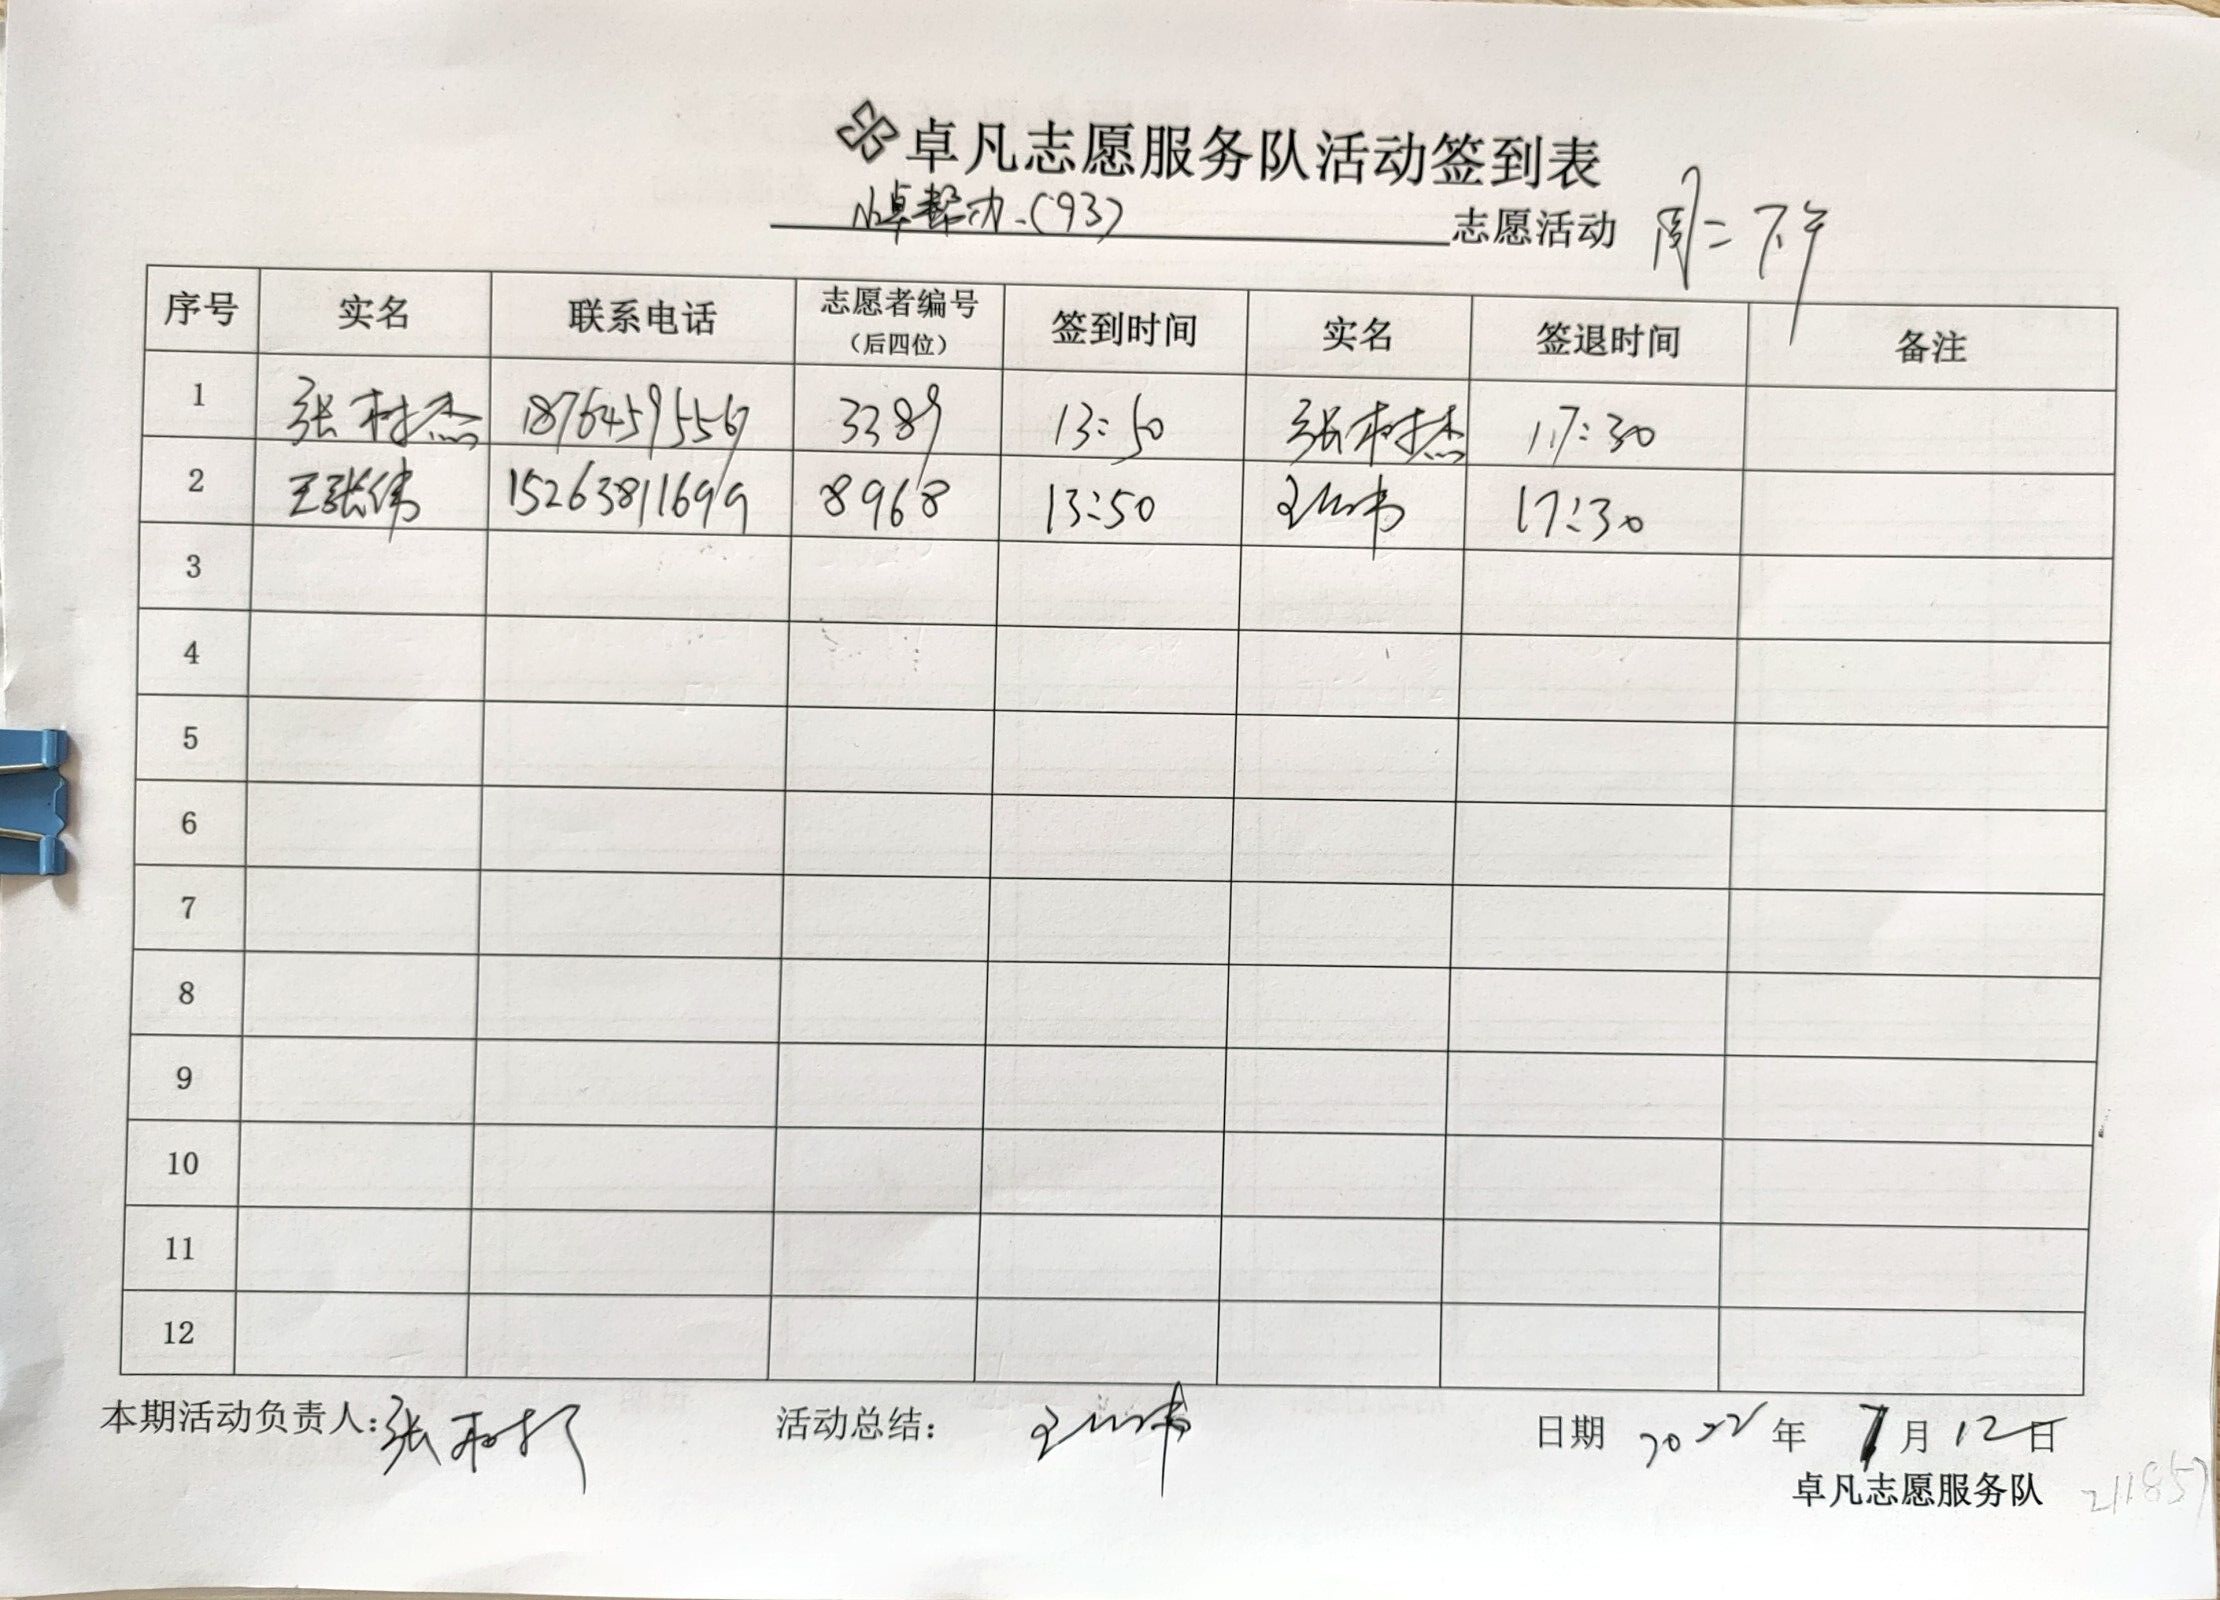 卓凡志愿服务队活动签到表
小卓帮办(93) 志愿活动 周二下午
序号 实名 联系电话 志愿者编号（后四位） 签到时间 实名 签退时间 备注
1 张树杰 18764595567 3389 13:50 张树杰 17:30
2 王张伟 15263811699 8968 13:50 17:30
3
4
5
6
7
8
9
10
11
12
本期活动负责人:张树杰 活动总结: 日期 2022年 7月12日
卓凡志愿服务队 211857